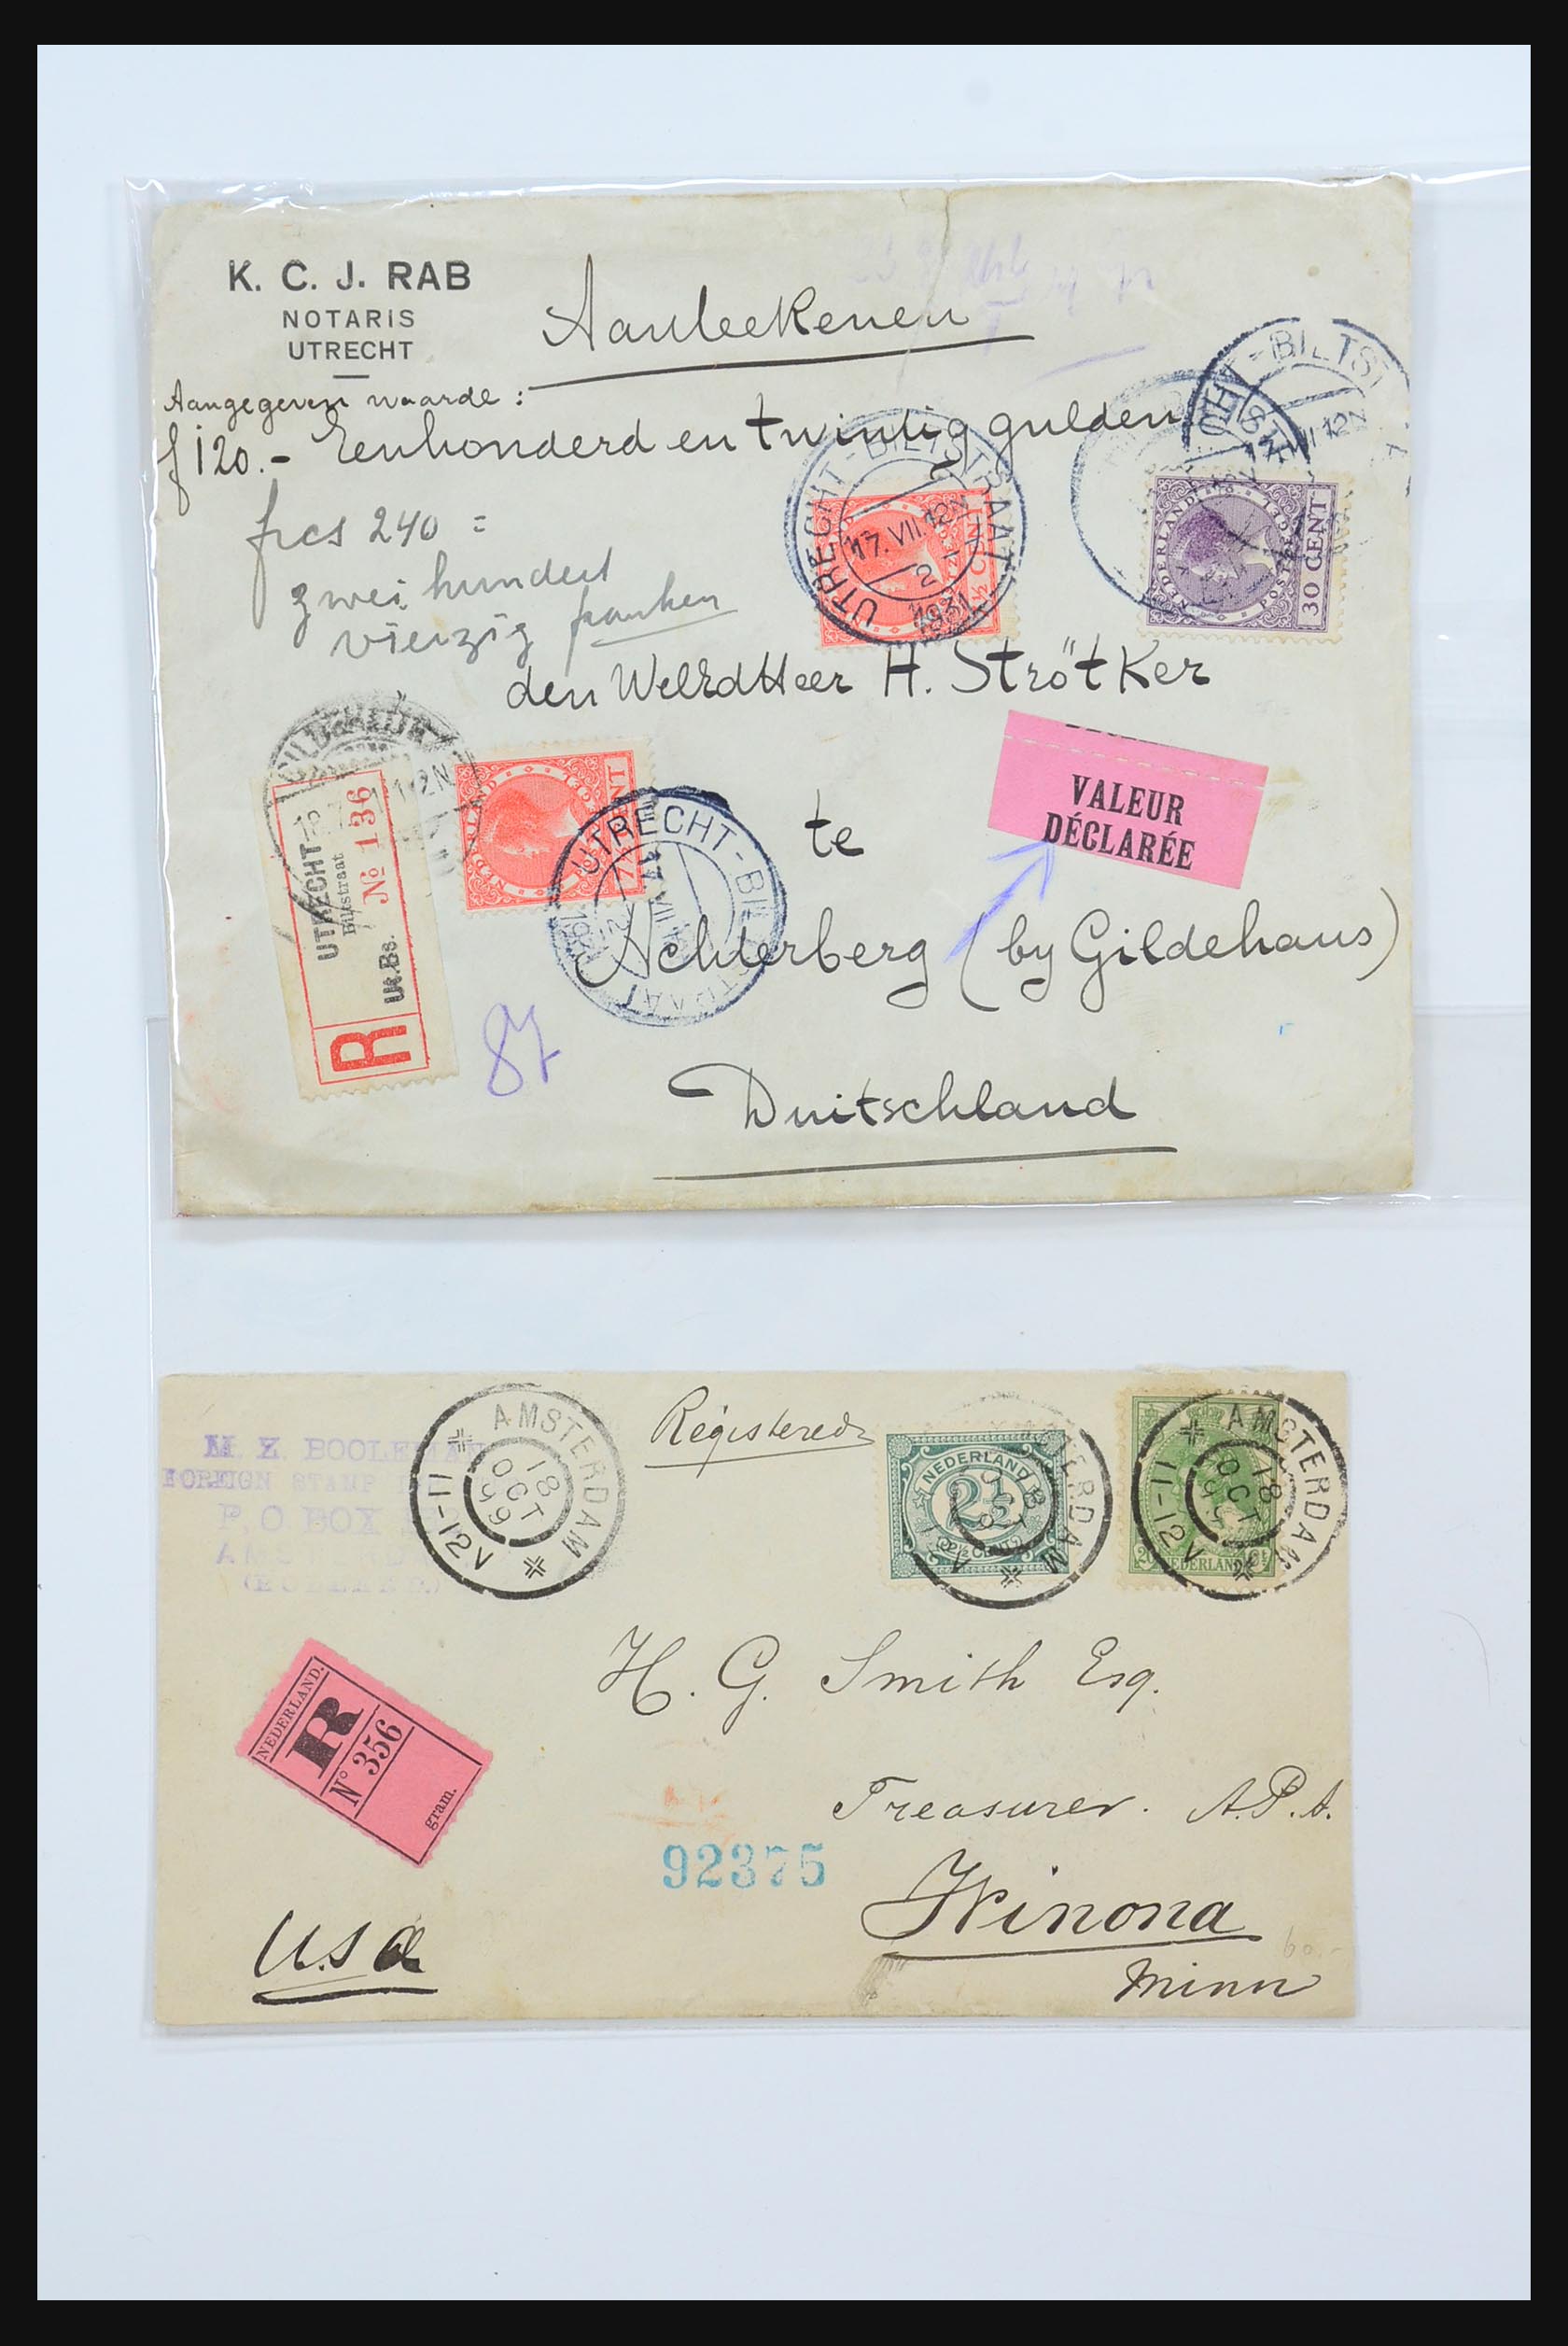 K. C. J. RAB
NOTARIS
UTRECHT
Aanteekenen
Aangegeven waarde:
f 120.- Eenhonderd en twintig gulden
frcs 240 =
zwei hundert
vierzig franken
UTRECHT-BILTSTRAAT
17.VII.12N
2
1931
30 CENT
den WelEdHeer H. Strötker
VALEUR
DÉCLARÉE
te
UTRECHT
Biltstraat
Ut.Bs.
№ 136
R
7½ CENT
UTRECHT-BILTSTRAAT
1931
Achterberg (by Gildehaus)
87
Duitschland
M. E. 
FOREIGN STAMP
P.O BOX
AMSTERDAM
18
OCT
99
11-12V
Registered
NEDERLAND
2½
(2½ CENT)
AMSTERDAM
18
OCT
99
11-12V
NEDERLAND
H. G. Smith Esq.
NEDERLAND.
R
N° 356
gram.
Treasurer. A.P.A.
92375
Winona
U.S.a
60.-
Minn